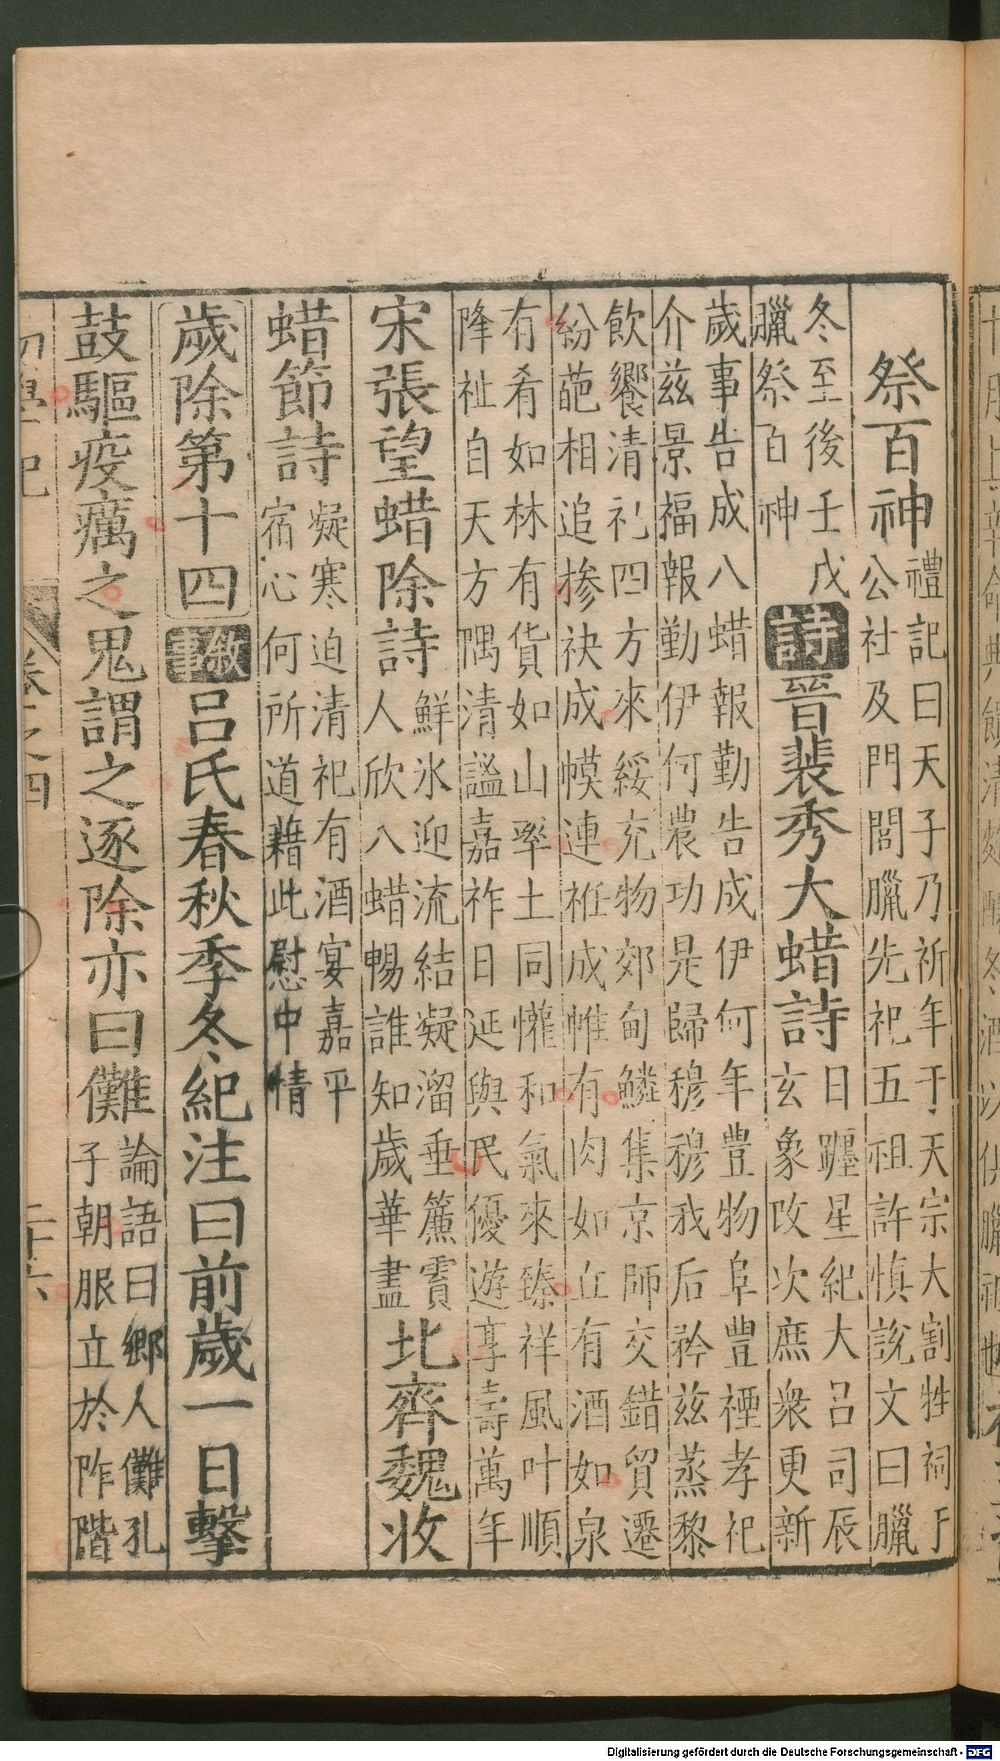 祭百神禮記曰天子乃祈年于天宗大割牲祠于
公社及門閭臘先祀五祖許慎說文曰臘
冬至後壬戌
臘祭百神
詩晉裴秀大蜡詩日躔星紀大呂司辰
玄象改次庶衆更新
歲事告成八蜡報勤告成伊何年豊物阜豊禋孝祀
介兹景福報勤伊何農功是歸穆穆我后矜兹蒸黎
飲饗清祀四方來綏充物郊甸鱗集京師交錯貿遷
紛葩相追摻袂成幙連袵成帷有肉如丘有酒如泉
有肴如林有貨如山率土同懽和氣來臻祥風叶順
降祉自天方隅清謐嘉祚日延與民優遊享壽萬年
宋張望蜡除詩鮮氷迎流結凝溜垂簷霣
人欣八蜡暢誰知歲華盡
北齊魏收
蜡節詩凝寒迫清祀有酒宴嘉平
宿心何所道藉此慰中情
歲除第十四敘事呂氏春秋季冬紀注曰前歲一日擊
鼓驅疫癘之鬼謂之逐除亦曰儺論語曰鄉人儺孔
子朝服立於阼階
初學記 卷之四 二十六
Digitalisierung gefördert durch die Deutsche Forschungsgemeinschaft - DFG